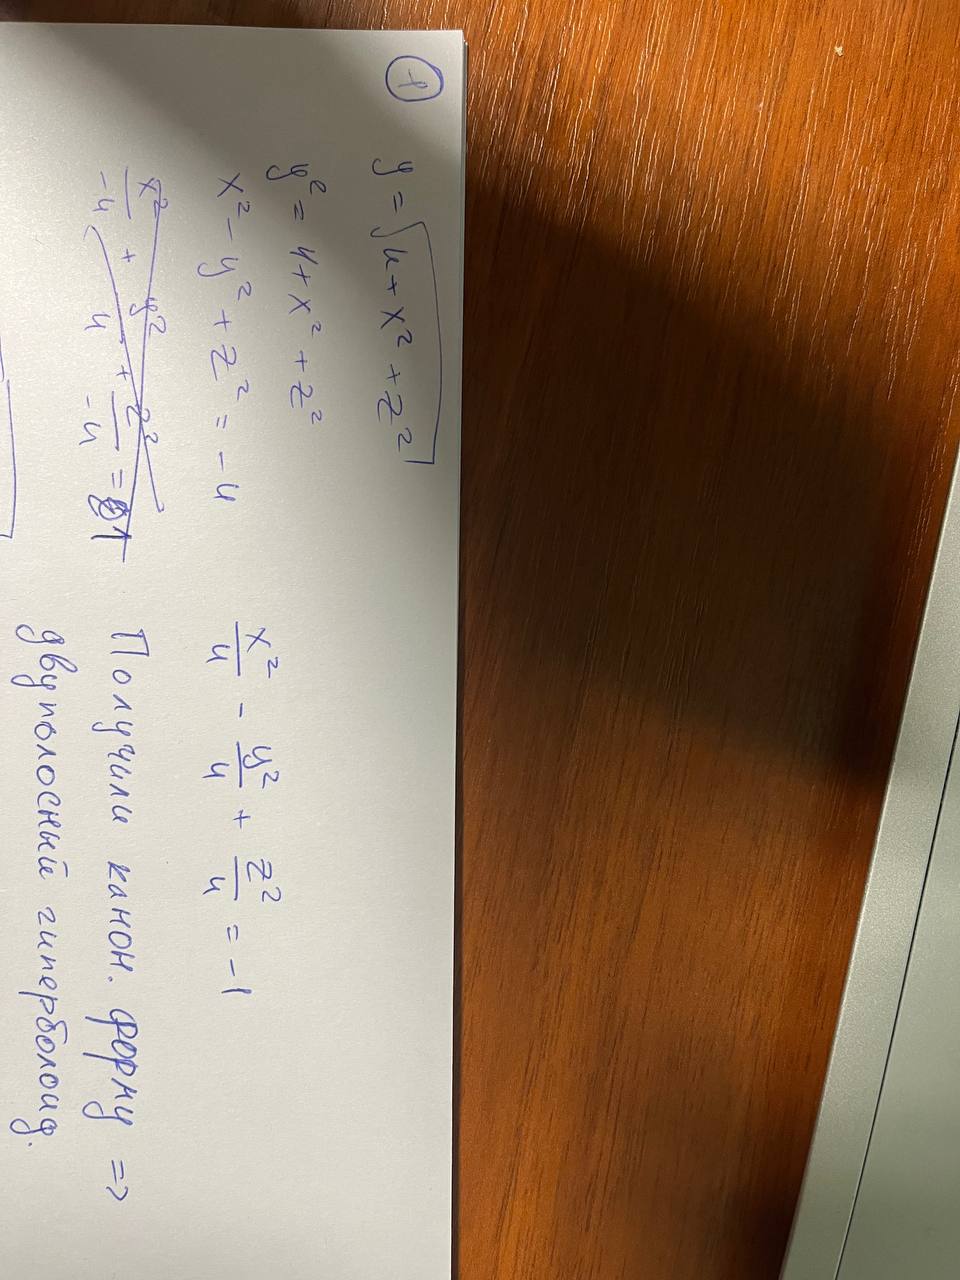 1
y = √4 + x² + z²
y² = 4 + x² + z²
x² - y² + z² = -4
x²/4 - y²/4 + z²/4 = -1
Получили канон. форму =>
двуполосный гиперболоид.